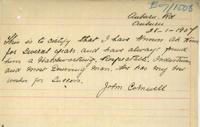 Auburn Rd
Auburn
28-1-1907
This is to certify that I have known
for several years and have always found
him a Hardworking, Respectable, Industrious
and most Deserving Man. He has my best
wishes for Success.
John Cornwell